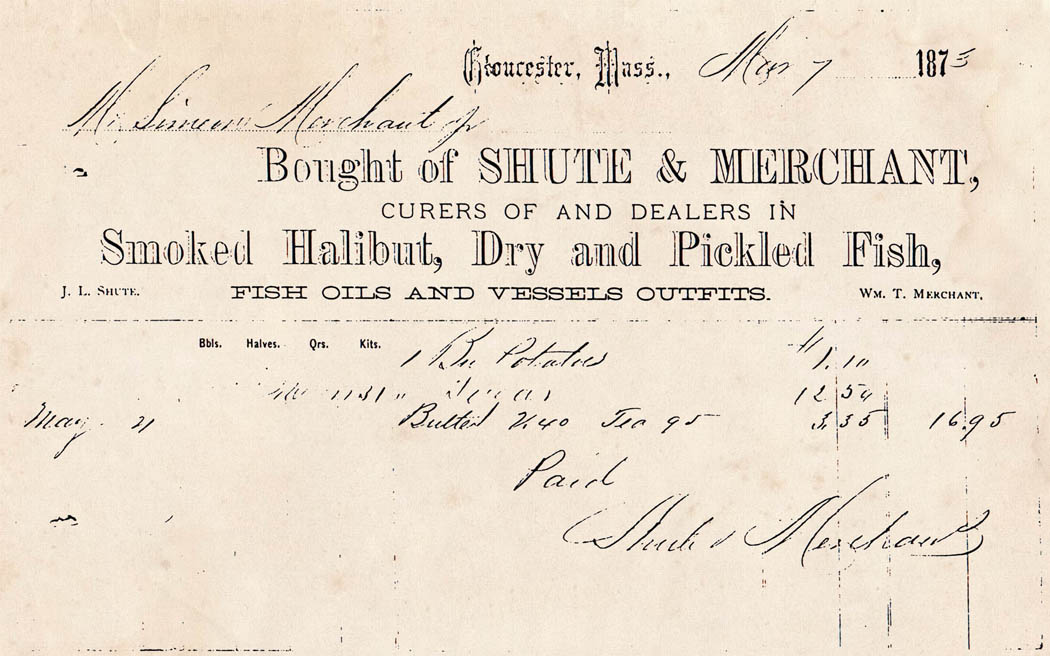 Gloucester, Mass., May 7 1873
Mr Simeon Merchant Jr
Bought of SHUTE & MERCHANT,
CURERS OF AND DEALERS IN
Smoked Halibut, Dry and Pickled Fish,
J. L. SHUTE. FISH OILS AND VESSELS OUTFITS. WM. T. MERCHANT.
Bbls. Halves. Qrs. Kits.
1 Bu Potatoes $1.10
Sugar 12 50
May 21 Butter 2.40 Tea 95 3.35 16.95
Paid
Shute & Merchant